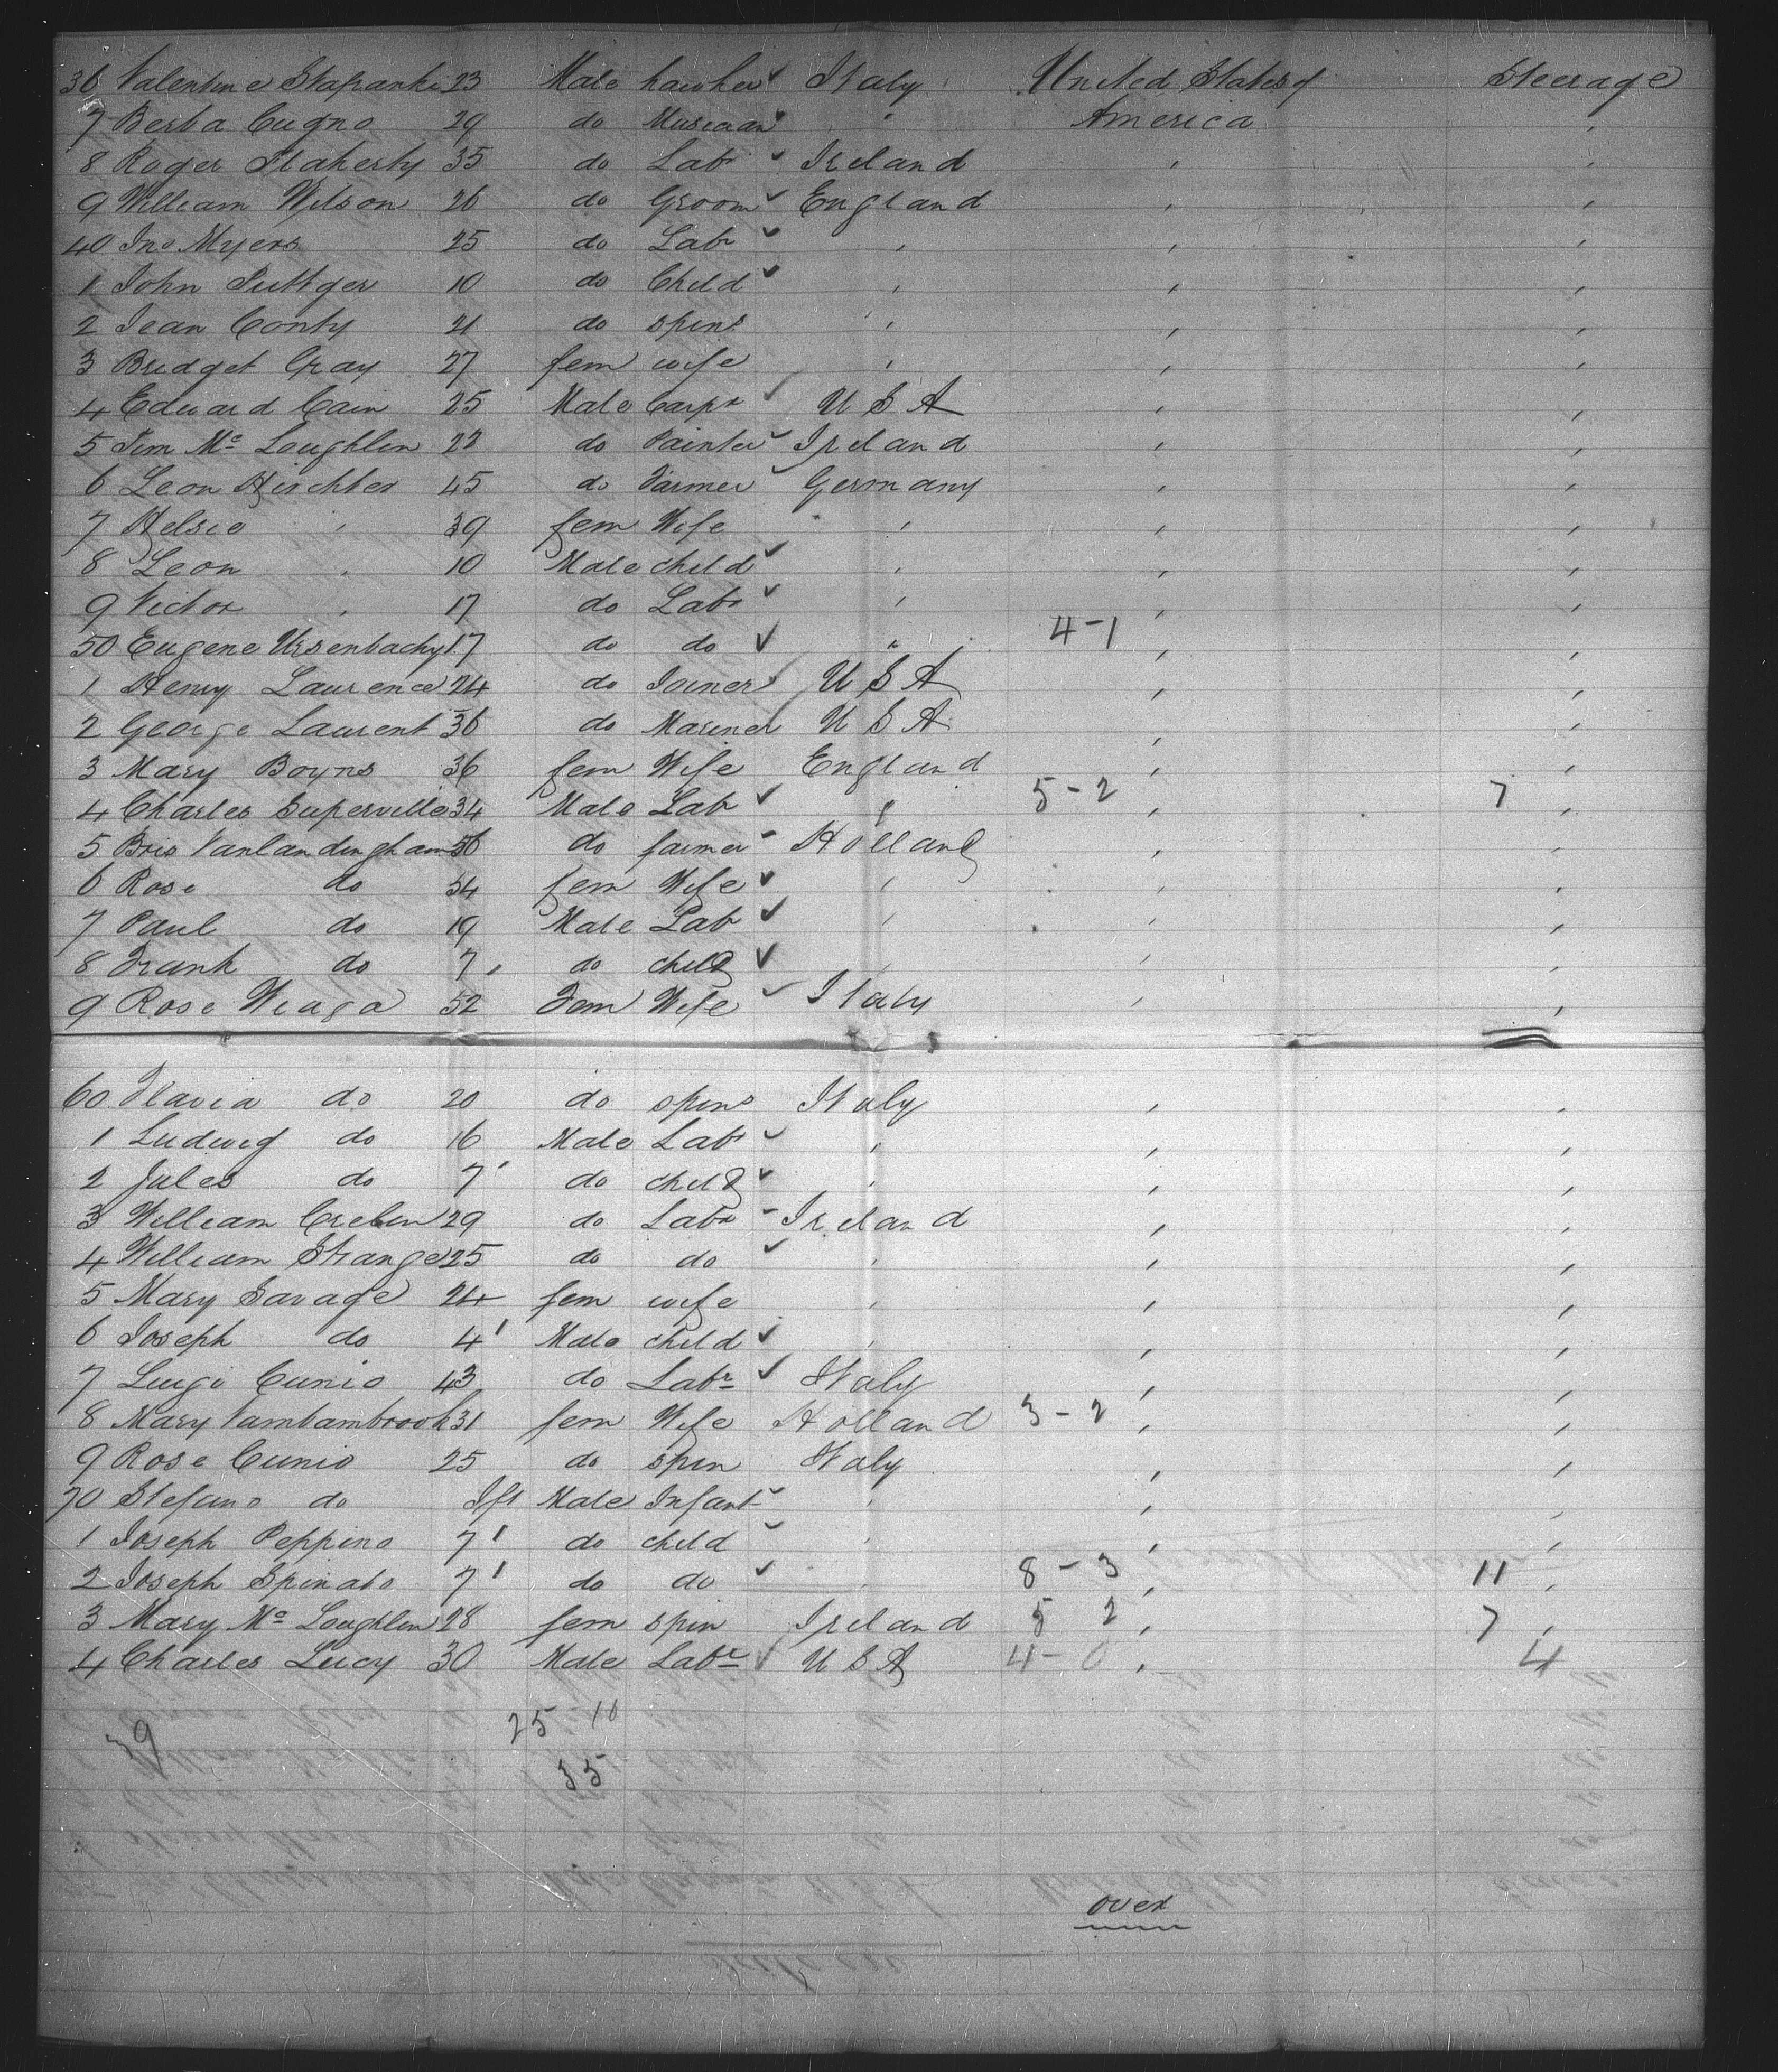 36 Valentine Stafranke 23 Male hawker ✓ Italy United States of Steerage
7 Berba Cugno 29 do Musician " America "
8 Roger Flaherty 35 do Labr ✓ Ireland " "
9 William Wilson 26 do Groom ✓ England " "
40 Jno Myers 25 do Labr ✓ " " "
1 John Puttger 10 do Child ✓ " " "
2 Jean Conty 21 do spins " " "
3 Bridget Gray 27 fem wife " " "
4 Edward Cain 25 Male Carpr ✓ U S A " "
5 Jim Mc Loughlin 22 do Painter ✓ Ireland " "
6 Leon Hirchter 45 do Farmer ✓ Germany " "
7 Helsie " 39 fem Wife " " "
8 Leon " 10 Male child ✓ " " "
9 Victor " 17 do Labr ✓ " " "
50 Eugene Ursenbachy 17 do do ✓ " 4-1 " "
1 Henry Laurence 24 do Joiner ✓ U S A " "
2 George Laurent 36 do Mariner U S A " "
3 Mary Boyns 36 fem Wife England " "
4 Charles Superville 34 Male Lab ✓ " 5-2 " 7 "
5 Bris Vanlandingham 56 do farmer - Holland " "
6 Rose do 54 fem Wife ✓ " " "
7 Paul do 19 Male Lab ✓ " " "
8 Frank do 7 do child ✓ " " "
9 Rose Weaga 52 Fem Wife ✓ Italy " "
60 Flavia do 20 do spins Italy " "
1 Ludwig do 16 Male Labr ✓ " " "
2 Jules do 7 do child ✓ " " "
3 William Crebin 29 do Labr - Ireland " "
4 William Strange 25 do do ✓ " " "
5 Mary Savage 24 fem wife " " "
6 Joseph do 4 Male child ✓ " " "
7 Luigi Cunio 43 do Labr ✓ Italy " "
8 Mary Vambambrook 31 fem Wife Holland 3-2 " "
9 Rose Cunio 25 do spin Italy " "
70 Stefano do Ift Male Infant ✓ " " "
1 Joseph Peppino 7 do child ✓ " " "
2 Joseph Spinato 7 do do ✓ " 8-3 " 11 "
3 Mary Mc Loughlin 28 fem spin Ireland 5 2 " 7 "
4 Charles Lucy 30 Male Labr ✓ U S A 4-0 " 4
39 25-10
35
over